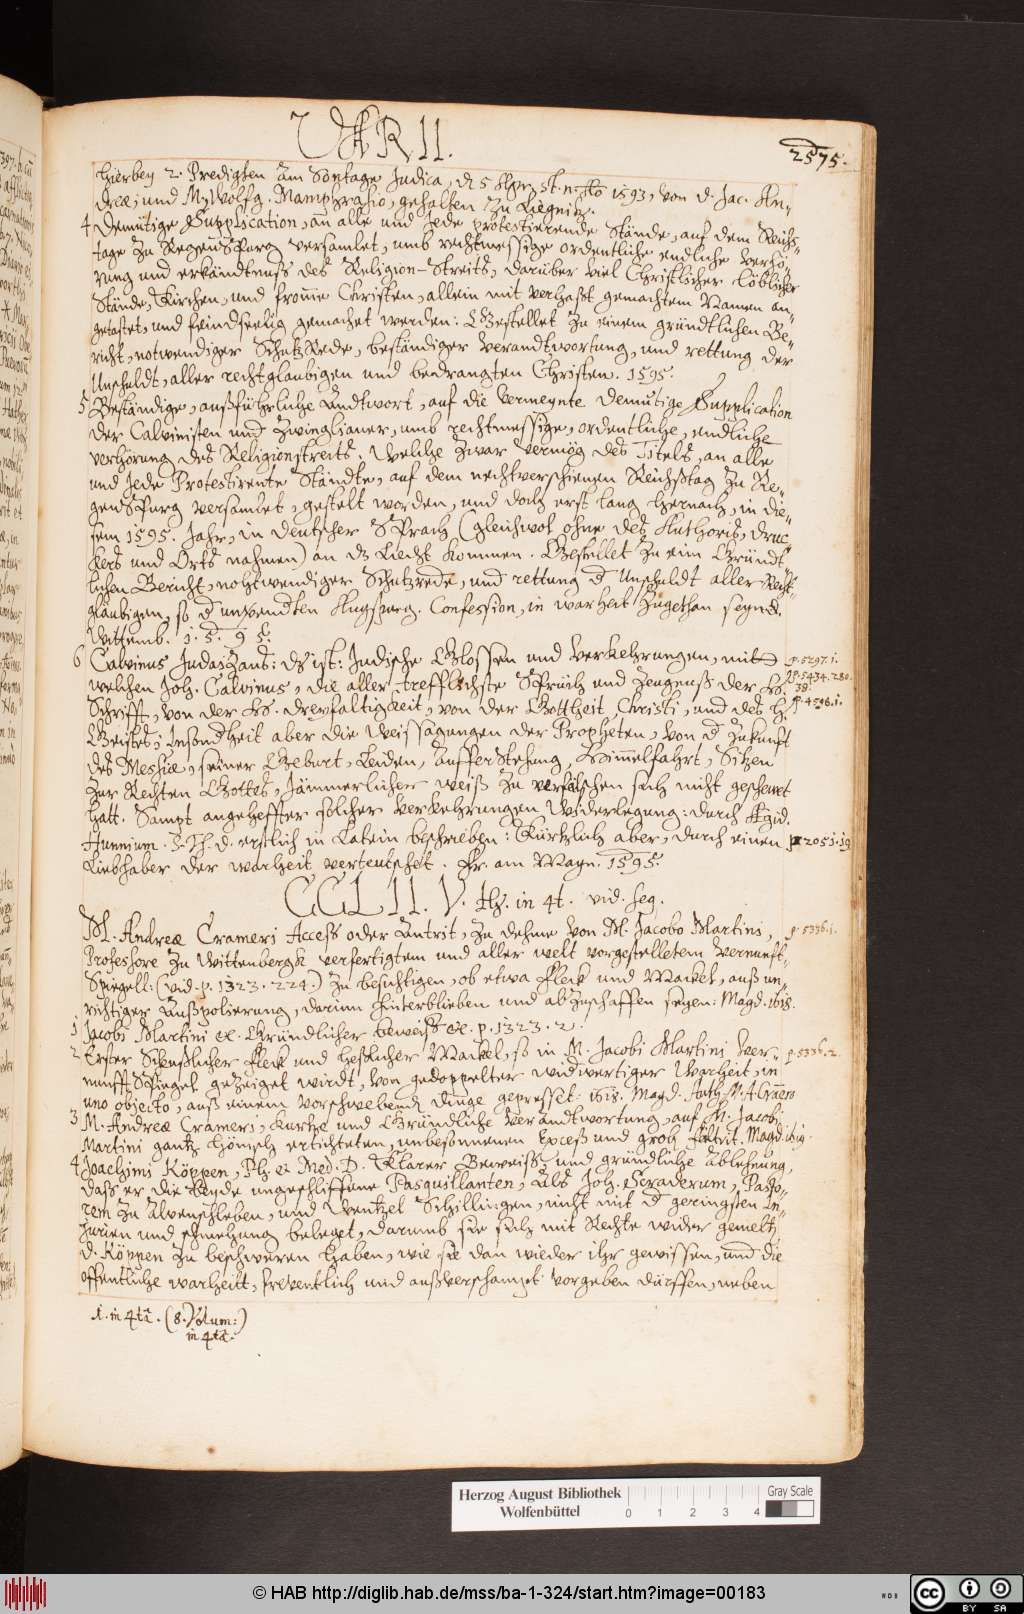 VARII.
2575.
Hierbeij 2. Predigten am Sontage Judica, dē 5 Apr. st. n. Ao 1593, von D. Jac. An-
dreæ, und M. Wolfg. Mamphrasio, gehalten zu Liegnitz.
4 Demütige Supplication, an alle und jede protestierende Stände, auf dem Reichs-
tage zu RegenSPurg versamlet, umb rechtmessige ordentliche endliche Verhö-
rung und erkändtnuß des Religion-Streits, darüber viel Christlicher Löblicher
Stände, Kirchen, und from̄e Christen, allein mit verhaßt gemachtem Namen an-
getastet, und feindseelig gemachet werden: Gestellet zu einem gründtlichen Be-
richt, notwendiger SchutzRede, beständiger Verandtwortung, und rettung der
Unschuldt, aller rechtglaubigen und bedrangten Christen. 1595.
5 Beständige, außführliche Andtwort, auf die vermeynte demütige Supplication
der Calvinisten und Zwinglianer, umb rechtmessige, ordentliche, endliche
verhörung des Religionstreits, Welche zwar vermög des Titels, an alle
und jede Protestirente Ständte, auf dem nechtverschienen Reichßtag zu Re-
genSPurg versamlet, gestelt worden, und doch erst lang hernach, in die-
sem 1595. Jahr, in deutscher SPrach (gleichwol ohne des Authoris, druc-
kers und Orts nahmen) an dz Liecht kommen. Gestellet zu ein Gründt-
lichen Bericht, nohtwendiger Schutzrede, und rettung d Unschuldt aller Recht-
gläubigen, so d Augsparg. Confession, in warheit zugethan seynd.
Wittemb. 1. 5. 9 5.
6 Calvinus Judaizans: dz ist: Jüdische Glossen und Verkehrungen, mit p. 5297. 1.
welchen Joh. Calvinus, die aller trefflichste SPrüch und Zeugenß der H. p. 5434. 280.
38.
Schrifft, von der H. Dreyfaltigkeit, von der Gottheit Christi, und des H. p. 4596. 1.
Geistes; Insondheit aber die Weissagungen der Propheten, von d Zukunft
des Messiæ, seiner Geburt, Leiden, Aufferstehung, Himmelfahrt, Sitzen
zur Rechten Gottes, Jämmerlicher weiß zu verfälschen sich nicht geschewet
hatt. Sampt angeheffter solcher Verkehrungen Widerlegung: durch Ægid.
Hunnium. S. Th. D. erstlich in Latein beschrieben: Kürtzlich aber, durch einen 2051. 19
Liebhaber der warheit verteutschet. Fr. am Mayn. 1595.
CCLII. V. th. in 4t. vid. seg.
M. Andreæ Crameri Access oder Antrit, zu dehme von M. Jacobo Martini, p. 5336. 1.
Professore zu Wittenbergk verfertigtem und aller welt vorgestelletem Vernunft-
Spiegell: (vid. p. 1323. 224.) zu besichtigen, ob etwa Fleck und Mackel, auß un-
richtiger Außpolierung, darinn hinterblieben und abzuschaffen seyen: Magd. 1618.
1 Jacobi Martini &c. Gründlicher beweiß &c. p. 1323. 2.
2 Erster Scheußlicher Fleck und heßlicher Mackel, so in M. Jacobi Martini Ver- p. 5336. 2.
nunfft Spiegel gezeiget wirdt, von gedoppelter widwertiger Warheit, in
uno objecto, auß einem vorschwebendē dinge gepresset: 1618. Magd. Auth. M. A. Cram̄ero
3 M. Andreæ Crameri, kurtze und Gründliche Verandtwortung, auf M. Jacobi
Martini gantz hönisch ertichteten, unbesonnenen Exceß und grob Faltrit. Magd. 1619.
4 Joachimi Köppen, Ph. et Med. D. Klarer Beweiß, und gründliche Ablehnung,
daß er die beyde ungeschliffene Pasquillanten, Als Joh. Scraderum, Pasto-
rem zu Alvenschleben, und Wentzel Schillingen, nicht mit d geringsten In-
jurien und schmehung beleget, darumb sie sich mit Rechte wider gemelt.
D. Köppen zu beschweren haben, wie sie dan wieder ihr gewissen, und die
offentliche warheitt, freventlich und außverschampt vorgeben dürffen, neben
1. in 4tā. (8. Volum:)
in 4tā.
Herzog August Bibliothek
Wolfenbüttel
Gray Scale
0 1 2 3 4
© HAB http://diglib.hab.de/mss/ba-1-324/start.htm?image=00183
HAB
cc BY SA